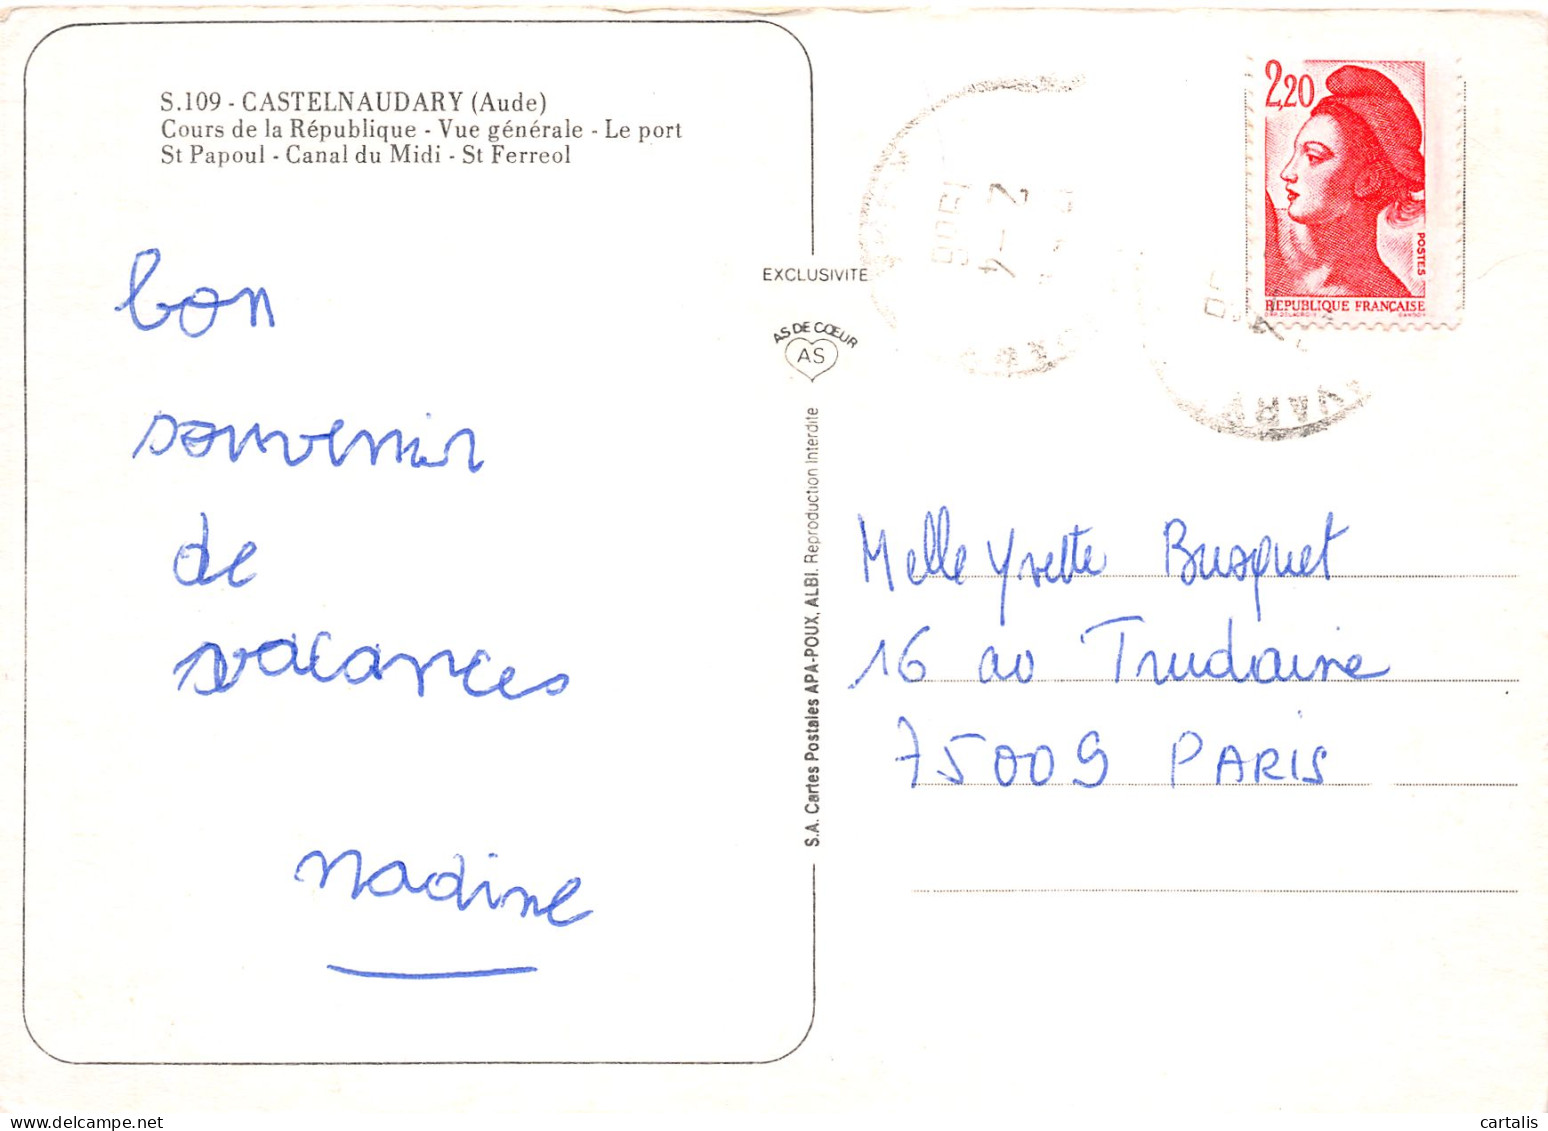 S.109 - CASTELNAUDARY (Aude)
Cours de la République - Vue générale - Le port
St Papoul - Canal du Midi - St Ferreol
bon
souvenir
de
vacances
nadine
EXCLUSIVITE
AS DE CŒUR
AS
S.A. Cartes Postales APA-POUX, ALBI. Reproduction Interdite
2,20
POSTES
RÉPUBLIQUE FRANÇAISE
2 - 4
Melle Yvette Busquet
16 av Trudaine
75009 PARIS
cartalis